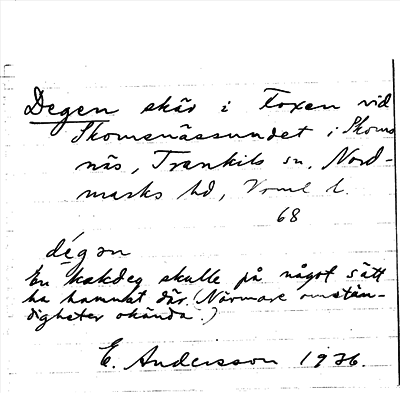 Degen skär i Foxen vid
Skomenässundet i Skome
näs, Trankils sn, Nord-
marks hd, Verml l.
68
degɘn
En kakdeg skulle på något sätt
ha hamnat där. (Närmare omstän-
digheter okända.)
E. Andersson 1936.